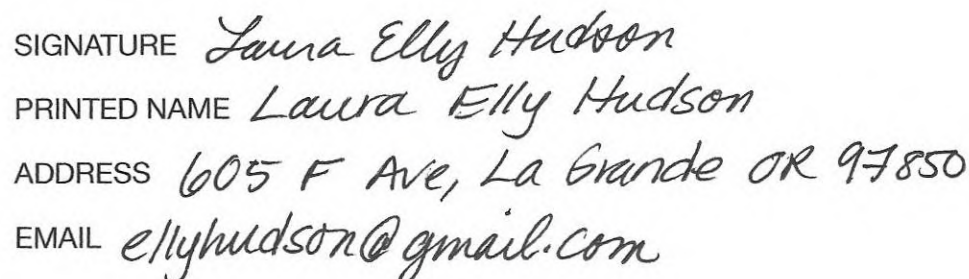 SIGNATURE Laura Elly Hudson
PRINTED NAME Laura Elly Hudson
ADDRESS 605 F Ave, La Grande OR 97850
EMAIL ellyhudson@gmail.com